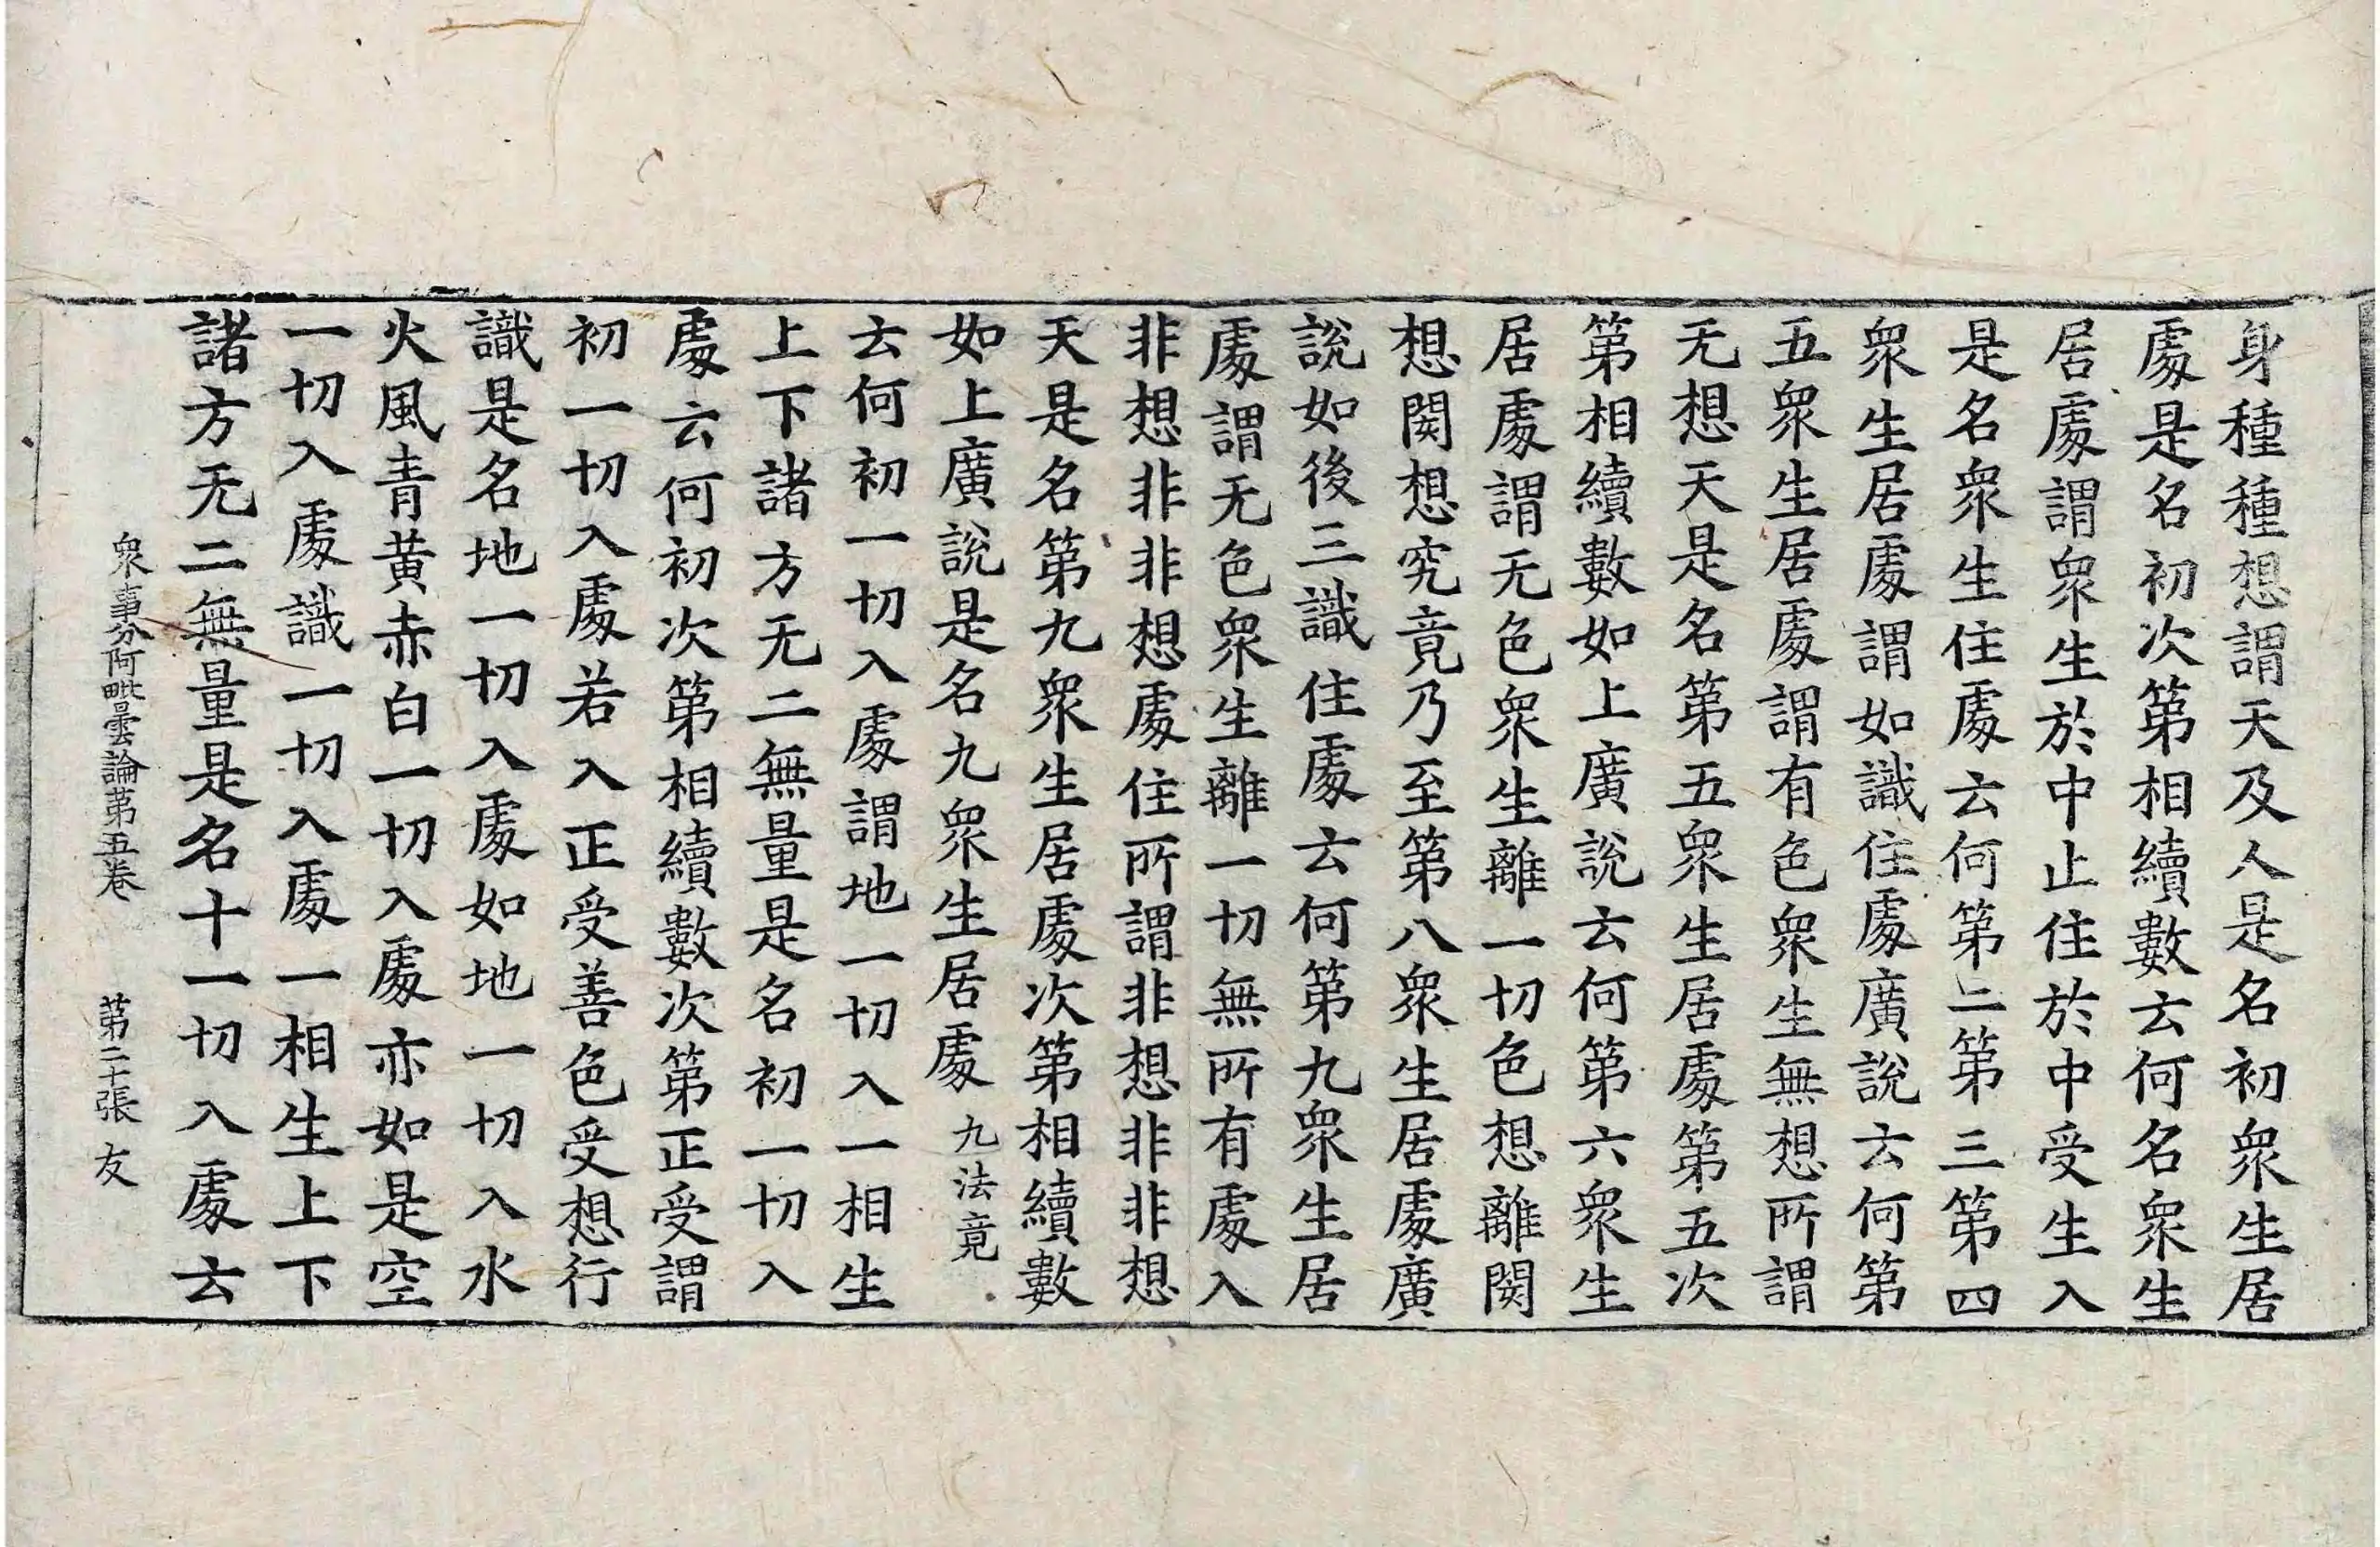 身種種想謂天及人是名初衆生居
處是名初次第相續數云何名衆生
居處謂衆生於中止住於中受生入
是名衆生住處云何第二第三第四
衆生居處謂如識住處廣說云何第
五衆生居處謂有色衆生無想所謂
无想天是名第五衆生居處第五次
第相續數如上廣說云何第六衆生
居處謂无色衆生離一切色想離閡
想閡想究竟乃至第八衆生居處廣
說如後三識住處云何第九衆生居
處謂无色衆生離一切無所有處入
非想非非想處住所謂非想非非想
天是名第九衆生居處次第相續數
如上廣說是名九衆生居處 九法竟
云何初一切入處謂地一切入一相生
上下諸方无二無量是名初一切入
處云何初次第相續數次第正受謂
初一切入處若入正受善色受想行
識是名地一切入處如地一切入水
火風青黄赤白一切入處亦如是空
一切入處識一切入處一相生上下
諸方无二無量是名十一切入處云
衆事分阿毗曇論第五卷 第二十張 友